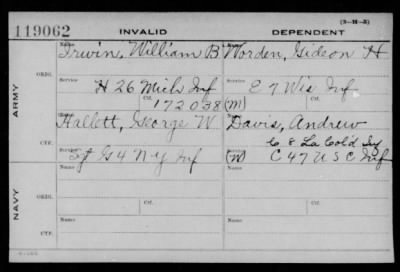 (3-M-3)
119062 INVALID DEPENDENT
ARMY
ORIG.
Name Name
Irwin, William B Worden, Gideon H
Service Service
H 26 Mich Inf E 7 Wis Inf
Ctf. Ctf.
172038 (M)
CTF.
Name Name
Hallett, George W. Davis, Andrew
C 8 La Col'd Inf
Service Service
G 4 N Y Inf (M) C 47 U S C Inf
NAVY
ORIG.
Name Ctf. Name Ctf.
CTF.
Name Name